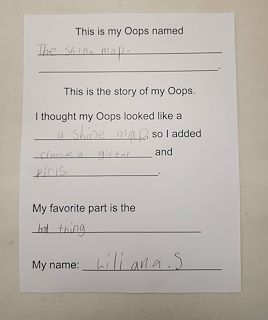 This is my Oops named
The Shine map
This is the story of my Oops.
I thought my Oops looked like a
a shine map, so I added
and
My favorite part is the
thing
My name: Liliana.S